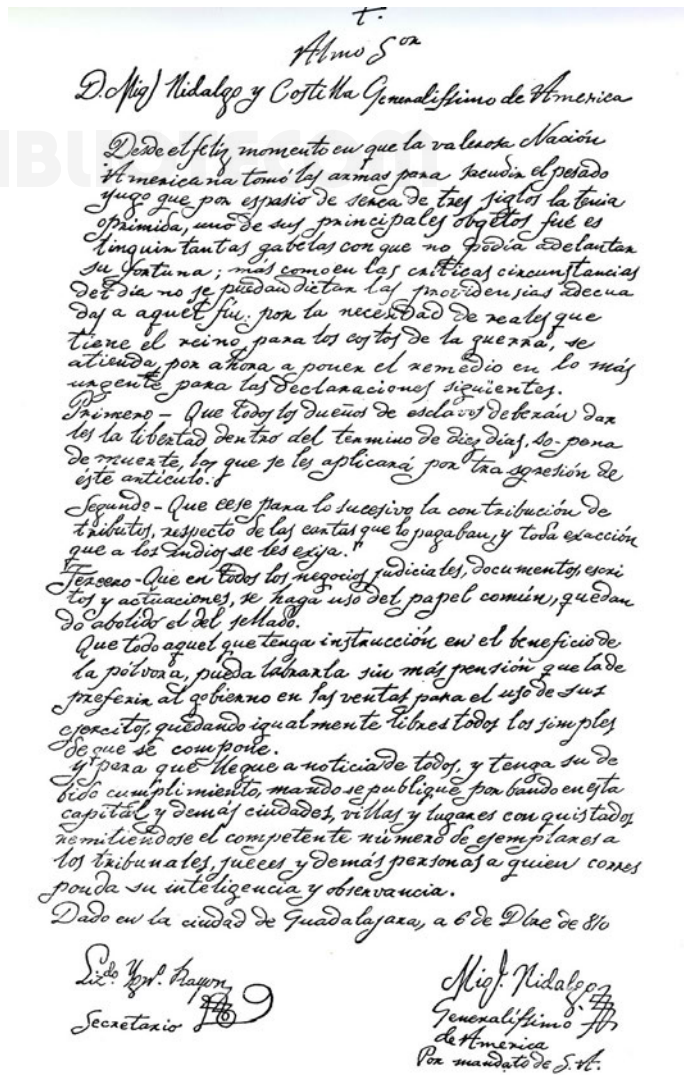 t.
Almo Sor
D. Migl Hidalgo y Costilla Generalissimo de America
Desde el feliz momento en que la valerosa Nación
Americana tomó las armas para sacudir el pesado
yugo que por espasio de serca de tres siglos la tenia
oprimida, uno de sus principales obgetos fué es
tinguir tantas gabelas con que no podía adelantar
su fortuna; más como en las críticas circunstancias
del día no se puedan dictar las providensias adecua
das a aquel fín: por la necesidad de reales que
tiene el reino para los costos de la guerra, se
atienda por ahora a poner el remedio en lo más
urgente para las declaraciones siguientes.
Primero - Que todos los dueños de esclavos deberán dar
les la libertad dentro del termino de diez días, so-pena
de muerte, los que se les aplicará por trasgresión de
éste artículo.
Segundo - Que cese para lo sucesivo la contribución de
tributos, respecto de las castas que lo pagaban, y toda exacción
que a los Indios se les exija."
Tercero - Que en todos los negocios judiciales, documentos, escri
tos y actuaciones, se haga uso del papel común, quedan
do abolido el del sellado.
Que todo aquel que tenga instrucción en el beneficio de
la pólvora, pueda labrarla sin más pensión que la de
preferir al gobierno en las ventas para el uso de sus
ejercitos, quedando igualmente libres todos los simples
de que se compone.
Y para que llegue a noticia de todos, y tenga su de
bido cumplimiento, mando se publique por bando en esta
capital y demás ciudades, villas y lugares conquistados
remitiéndose el competente número de ejemplares a
los tribunales, jueces y demás personas a quien corres
ponda su inteligencia y observancia.
Dado en la ciudad de Guadalajara, a 6 de Dbre de 810
Lizdo Ygno. Rayon
Secretario
Migl. Hidalgo
Generalíssimo
de America
Por mandato de S. A.